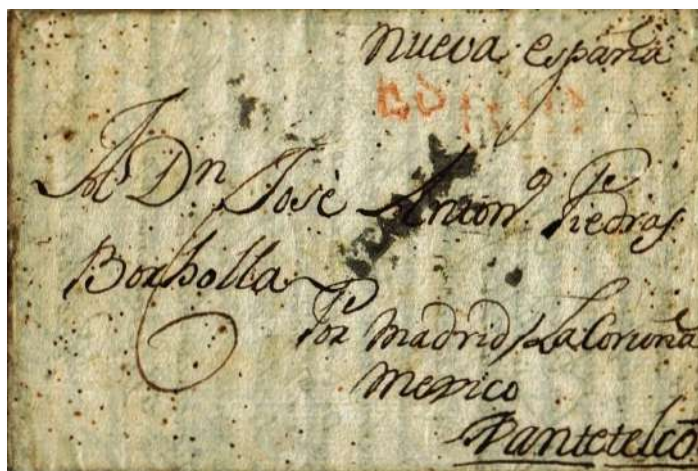 Nueva españa
A Dn José Antonº Piedras
Borbolla
Por Madrid/La Coruña
Mexico
Pantetelco